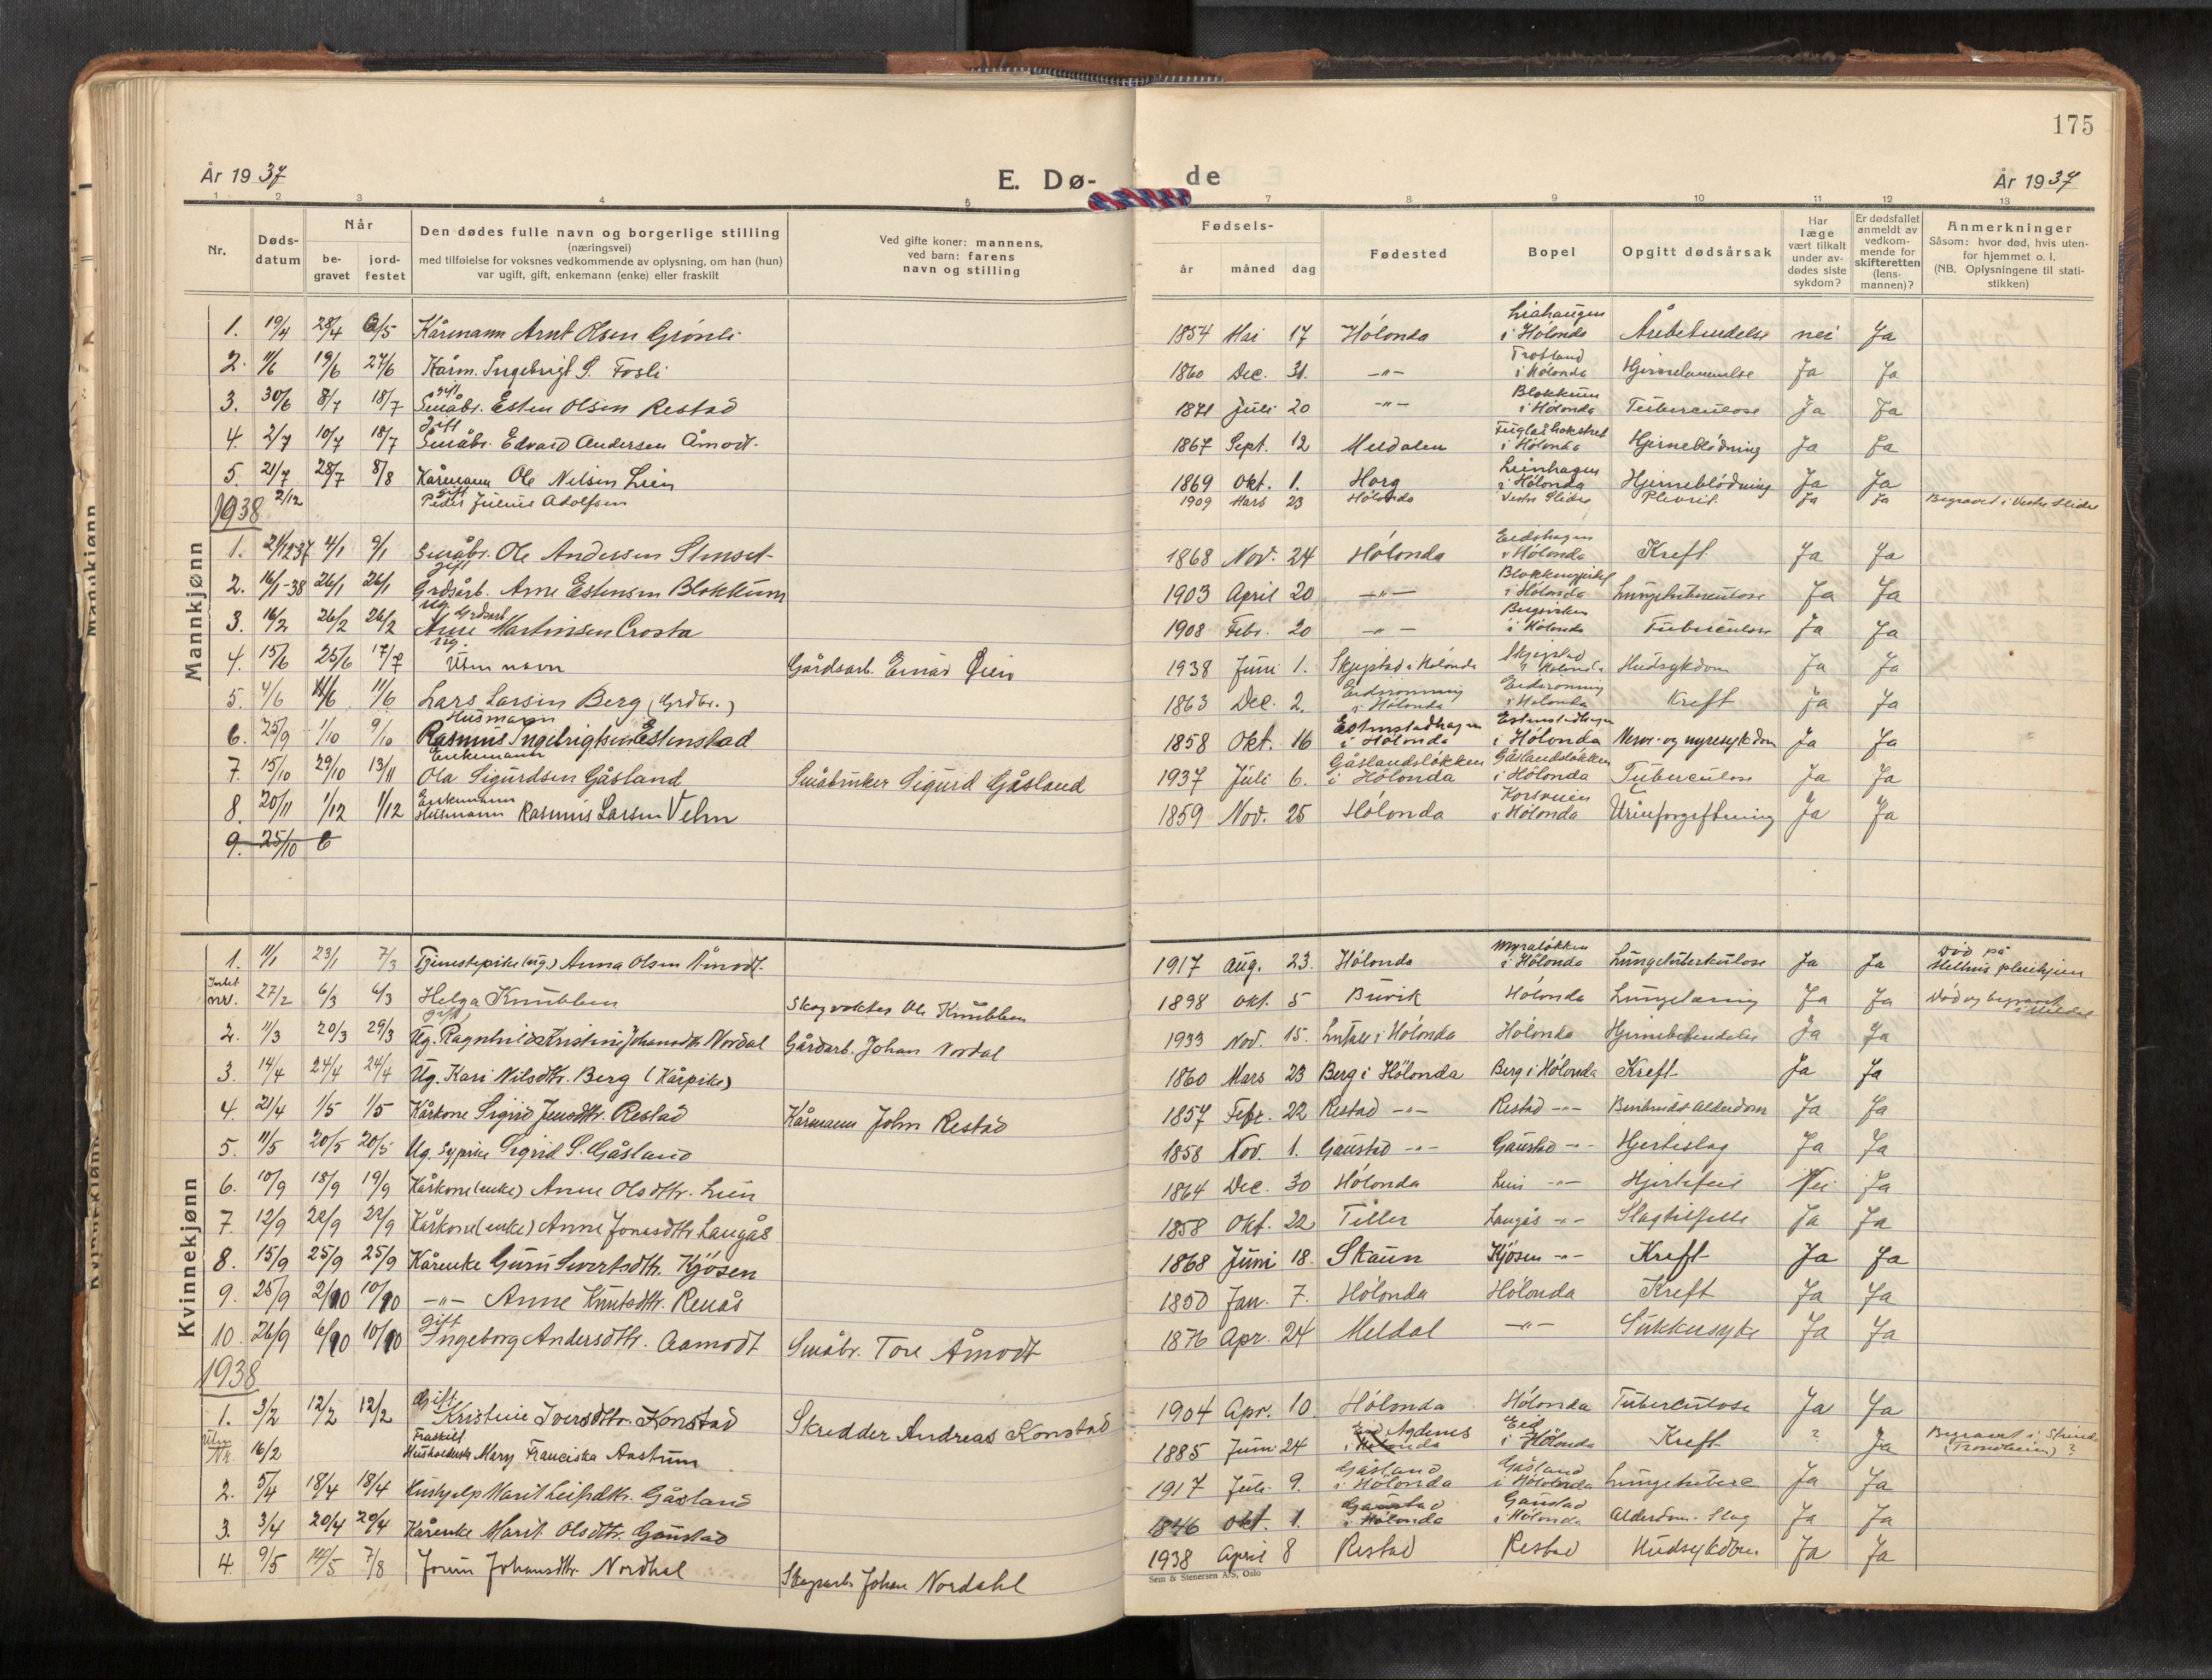 175
År 1937
E. Dø-
de
År 1937
1 2 3 4 5 7 8 9 10 11 12 13
Nr.
Døds-
datum
Når
be-
gravet
jord-
festet
Den dødes fulle navn og borgerlige stilling
(næringsvei)
med tilføielse for voksnes vedkommende av oplysning, om han (hun)
var ugift, gift, enkemann (enke) eller fraskilt
Ved gifte koner: mannens,
ved barn: farens
navn og stilling
Fødsels-
år måned dag
Fødested
Bopel
Opgitt dødsårsak
Har
læge
vært tilkalt
under av-
dødes siste
sykdom?
Er dødsfallet
anmeldt av
vedkom-
mende for
skifteretten
(lens-
mannen)?
Anmerkninger
Såsom: hvor død, hvis uten-
for hjemmet o. l.
(NB. Oplysningene til stati-
stikken)
Mannkjønn
1. 19/4 28/4 6/5 Kårmann Arnt Olsen Grønli 1854 Mai 17 Hólonda i Hólonda nei Ja
2. 11/6 19/6 27/6 Kårm. Ingebrigt S. Fosli 1860 Dec. 31. -"- i Hólonda Ja Ja
3. 30/6 8/7 18/7 gift Småbr. Esten Olsen Restad 1871 Juli 20 -"- Blokkum i Hólonda Tuberculose Ja Ja
4. 2/7 10/7 18/7 gift Småbr. Edvard Andersen Åmodt. 1867 Sept. 12 Meldalen i Hólonda Hjerneblódning Ja Ja
5. 21/7 28/7 8/8 Kårmann Ole Nilsen Lien 1869 Okt. 1. Horg Leinhagen i Hólonda Hjerneblódning Ja Ja
2/12 gift Peder Julius Adolfsen 1909 Mars 23 Hólonda Vestre Slidre Plevrit. Ja Ja Begravet i Vestre Slidre
1938
1. 21/12 37 4/1 9/1 Småbr. Ole Andersen 1868 Nov. 24 Hólonda Eidshagen i Hólonda Kreft Ja Ja
2. 16/1-38 26/1 26/1 gift Grdsarb. Arne Estensen Blokkum 1903 April 20 -"- i Hólonda Lungetuberculose Ja Ja
3. 16/2 26/2 26/2 ug. Grdsarb. Arne Martinsen Crosta 1908 Febr. 20 -"- i Hólonda Tuberculose Ja Ja
4. 15/6 25/6 17/7 ug. Uten navn Gårdsarb. Einar Øien 1938 Juni 1. Skjegstad i Hólonda Skjegstad i Hólonda Hudsykdom Ja Ja
5. 4/6 11/6 11/6 Lars Larsen Berg (Grdbr.) 1863 Dec. 2. Eidsrønning i Hólonda Eidsrønning i Hólonda Kreft Ja Ja
6. 25/9 1/10 9/10 Husmann Rasmus Ingebrigtsen Estenstad 1858 Okt. 16 Estenstadhagen i Hólonda Estenstadhagen i Hólonda Nerve- og nyresykdom Ja Ja
7. 15/10 29/10 13/11 Enkemann Ola Sigurdsen Gåsland Småbruker Sigurd Gåsland 1937 Juli 6. Gåslandslókken i Hólonda Gåslandslókken i Hólonda Tuberculose Ja Ja
8. 20/11 1/12 1/12 Enkemann Husmann Rasmus Larsen Velm 1859 Nov. 25 Hólonda Korsveien i Hólonda Urinforgiftning Ja Ja
9. 25/10 6
Kvinnekjønn
1. 11/1 23/1 7/3 Tjenestepike (ug.) Anna Olsen Åmodt. 1917 Aug. 23. Hólonda Myralókken i Hólonda Lungetuberkulose Ja Ja Død på Melhus pleiehjem
Intet nr. 27/2 6/3 6/3 Helga Knubben Skogvokter Ole Knubben 1898 Okt. 5 Buvik Hólonda Ja Ja Død og begravet
2. 11/3 20/3 29/3 gift, Ug. Ragnhild Kristine Johansdtr. Nordal Gårdarb. Johan Nordal 1933 Nov. 15. i Hólonda Hólonda Ja Ja
3. 14/4 24/4 24/4 Ug. Kari Nilsdtr. Berg (Kårpike) 1860 Mars 23 Berg i Hólonda Berg i Hólonda Kreft Ja Ja
4. 21/4 1/5 1/5 Kårkone Sigrid Jensdtr. Restad Kårmann John Restad 1857 Febr. 22 Restad -"- Restad -"- Alderdom Ja Ja
5. 11/5 20/5 20/5 Ug. Sypike Sigrid S. Gåsland 1858 Nov. 1. Gaustad -"- Gaustad -"- Hjerteslag Ja Ja
6. 10/9 18/9 19/9 Kårkone (enke) Anne Olsdtr. Lien 1864 Dec. 30 Hólonda Lein -"- Hjertefeil Nei Ja
7. 12/9 22/9 22/9 Kårkone (enke) Anne Jonasdtr. Langås 1858 Okt. 22 Tiller Langås -"- Slagtilfelle Ja Ja
8. 15/9 25/9 25/9 Kårenke Guru Sivertsdtr. Kjósen 1868 Juni 18. Skaun Kjósen -"- Kreft Ja Ja
9. 25/9 2/10 10/10 -"- Anne Knutsdtr. Renås 1850 Jan. 7. Hólonda Hólonda Kreft Ja Ja
10. 26/9 6/10 10/10 gift Ingeborg Andersdtr. Aamodt Småbr. Tore Åmodt 1876 Apr. 24 Meldal -"- Sukkersyke Ja Ja
1938
1. 3/2 12/2 12/2 Gift Kristine Iversdtr. Konstad Skredder Andreas Konstad 1904 Apr. 10. Hólonda Hólonda Tuberculose Ja Ja
Uten Nr. 16/2 Fraskilt Mary Franciska Aastum 1885 Juni 24 Agdenes i Hólonda Eid i Hólonda Kreft ? Ja Begravet i Strinda (Trondheim) ?
2. 5/4 18/4 18/4 Hushjelp Marit Leifsdtr. Gåsland 1917 Juli 9. Gåsland i Hólonda Gåsland i Hólonda Ja Ja
3. 3/4 20/4 20/4 Kårenke Marit Olsdtr. Gaustad 1846 Okt. 1. Gaustad i Hólonda Gaustad i Hólonda Alderdom. Slag Ja Ja
4. 9/5 14/5 7/8 Jorun Johansdtr. Nordhal Skogsarb. Johan Nordahl 1938 April 8 Restad Restad Hudsykdom Ja Ja
Sem & Stenersen A/S, Oslo